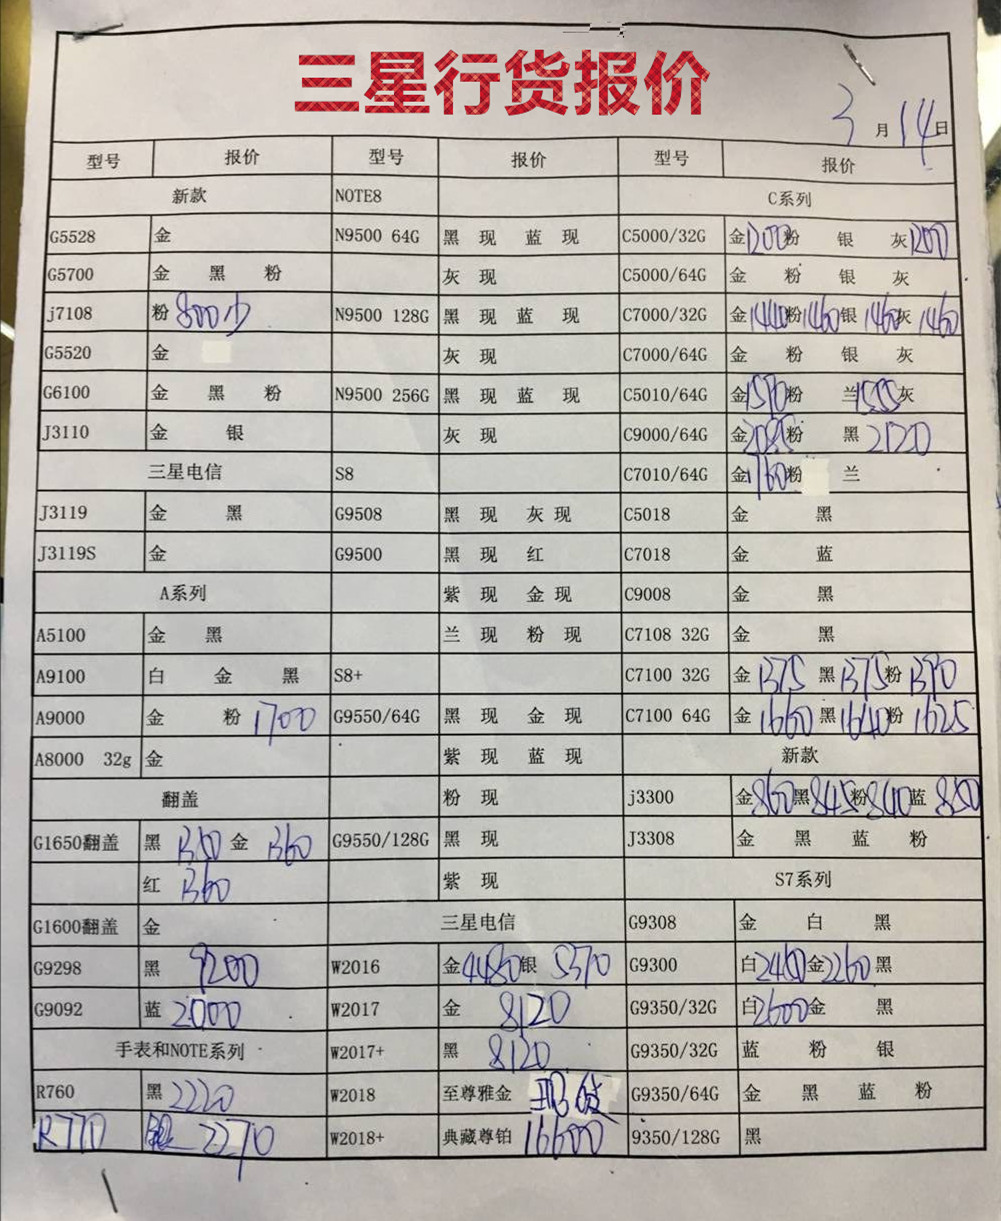 三星行货报价
3月14日
型号 报价 型号 报价 型号 报价
新款 NOTE8 C系列
G5528 金 N9500 64G 黑 现 蓝 现 C5000/32G 金1200粉 银 灰1200
G5700 金 黑 粉 灰 现 C5000/64G 金 粉 银 灰
j7108 粉 800少 N9500 128G 黑 现 蓝 现 C7000/32G 金1440粉1460银1460灰1460
G5520 金 灰 现 C7000/64G 金 粉 银 灰
G6100 金 黑 粉 N9500 256G 黑 现 蓝 现 C5010/64G 金1570粉 兰1555灰
J3110 金 银 灰 现 C9000/64G 金2085粉 黑 2120
三星电信 S8 C7010/64G 金1760粉 兰
J3119 金 黑 G9508 黑 现 灰 现 C5018 金 黑
J3119S 金 G9500 黑 现 红 C7018 金 蓝
A系列 紫 现 金 现 C9008 金 黑
A5100 金 黑 兰 现 粉 现 C7108 32G 金 黑
A9100 白 金 黑 S8+ C7100 32G 金 1375 黑 1375 粉 1390
A9000 金 粉 1700 G9550/64G 黑 现 金 现 C7100 64G 金 1660 黑 1640 粉 1625
A8000 32g 金 紫 现 蓝 现 新款
翻盖 粉 现 j3300 金860黑845粉840蓝 850
G1650翻盖 黑 1350 金 1360 G9550/128G 黑 现 J3308 金 黑 蓝 粉
红 1360 紫 现 S7系列
G1600翻盖 金 三星电信 G9308 金 白 黑
G9298 黑 9200 W2016 金4480银 5370 G9300 白2460金2260黑
G9092 蓝 2000 W2017 金 8120 G9350/32G 白2600金 黑
手表和NOTE系列 W2017+ 黑 8120 G9350/32G 蓝 粉 银
R760 黑 2220 W2018 至尊雅金 现货 G9350/64G 金 黑 蓝 粉
R770 银 2270 W2018+ 典藏尊铂 16600 9350/128G 黑